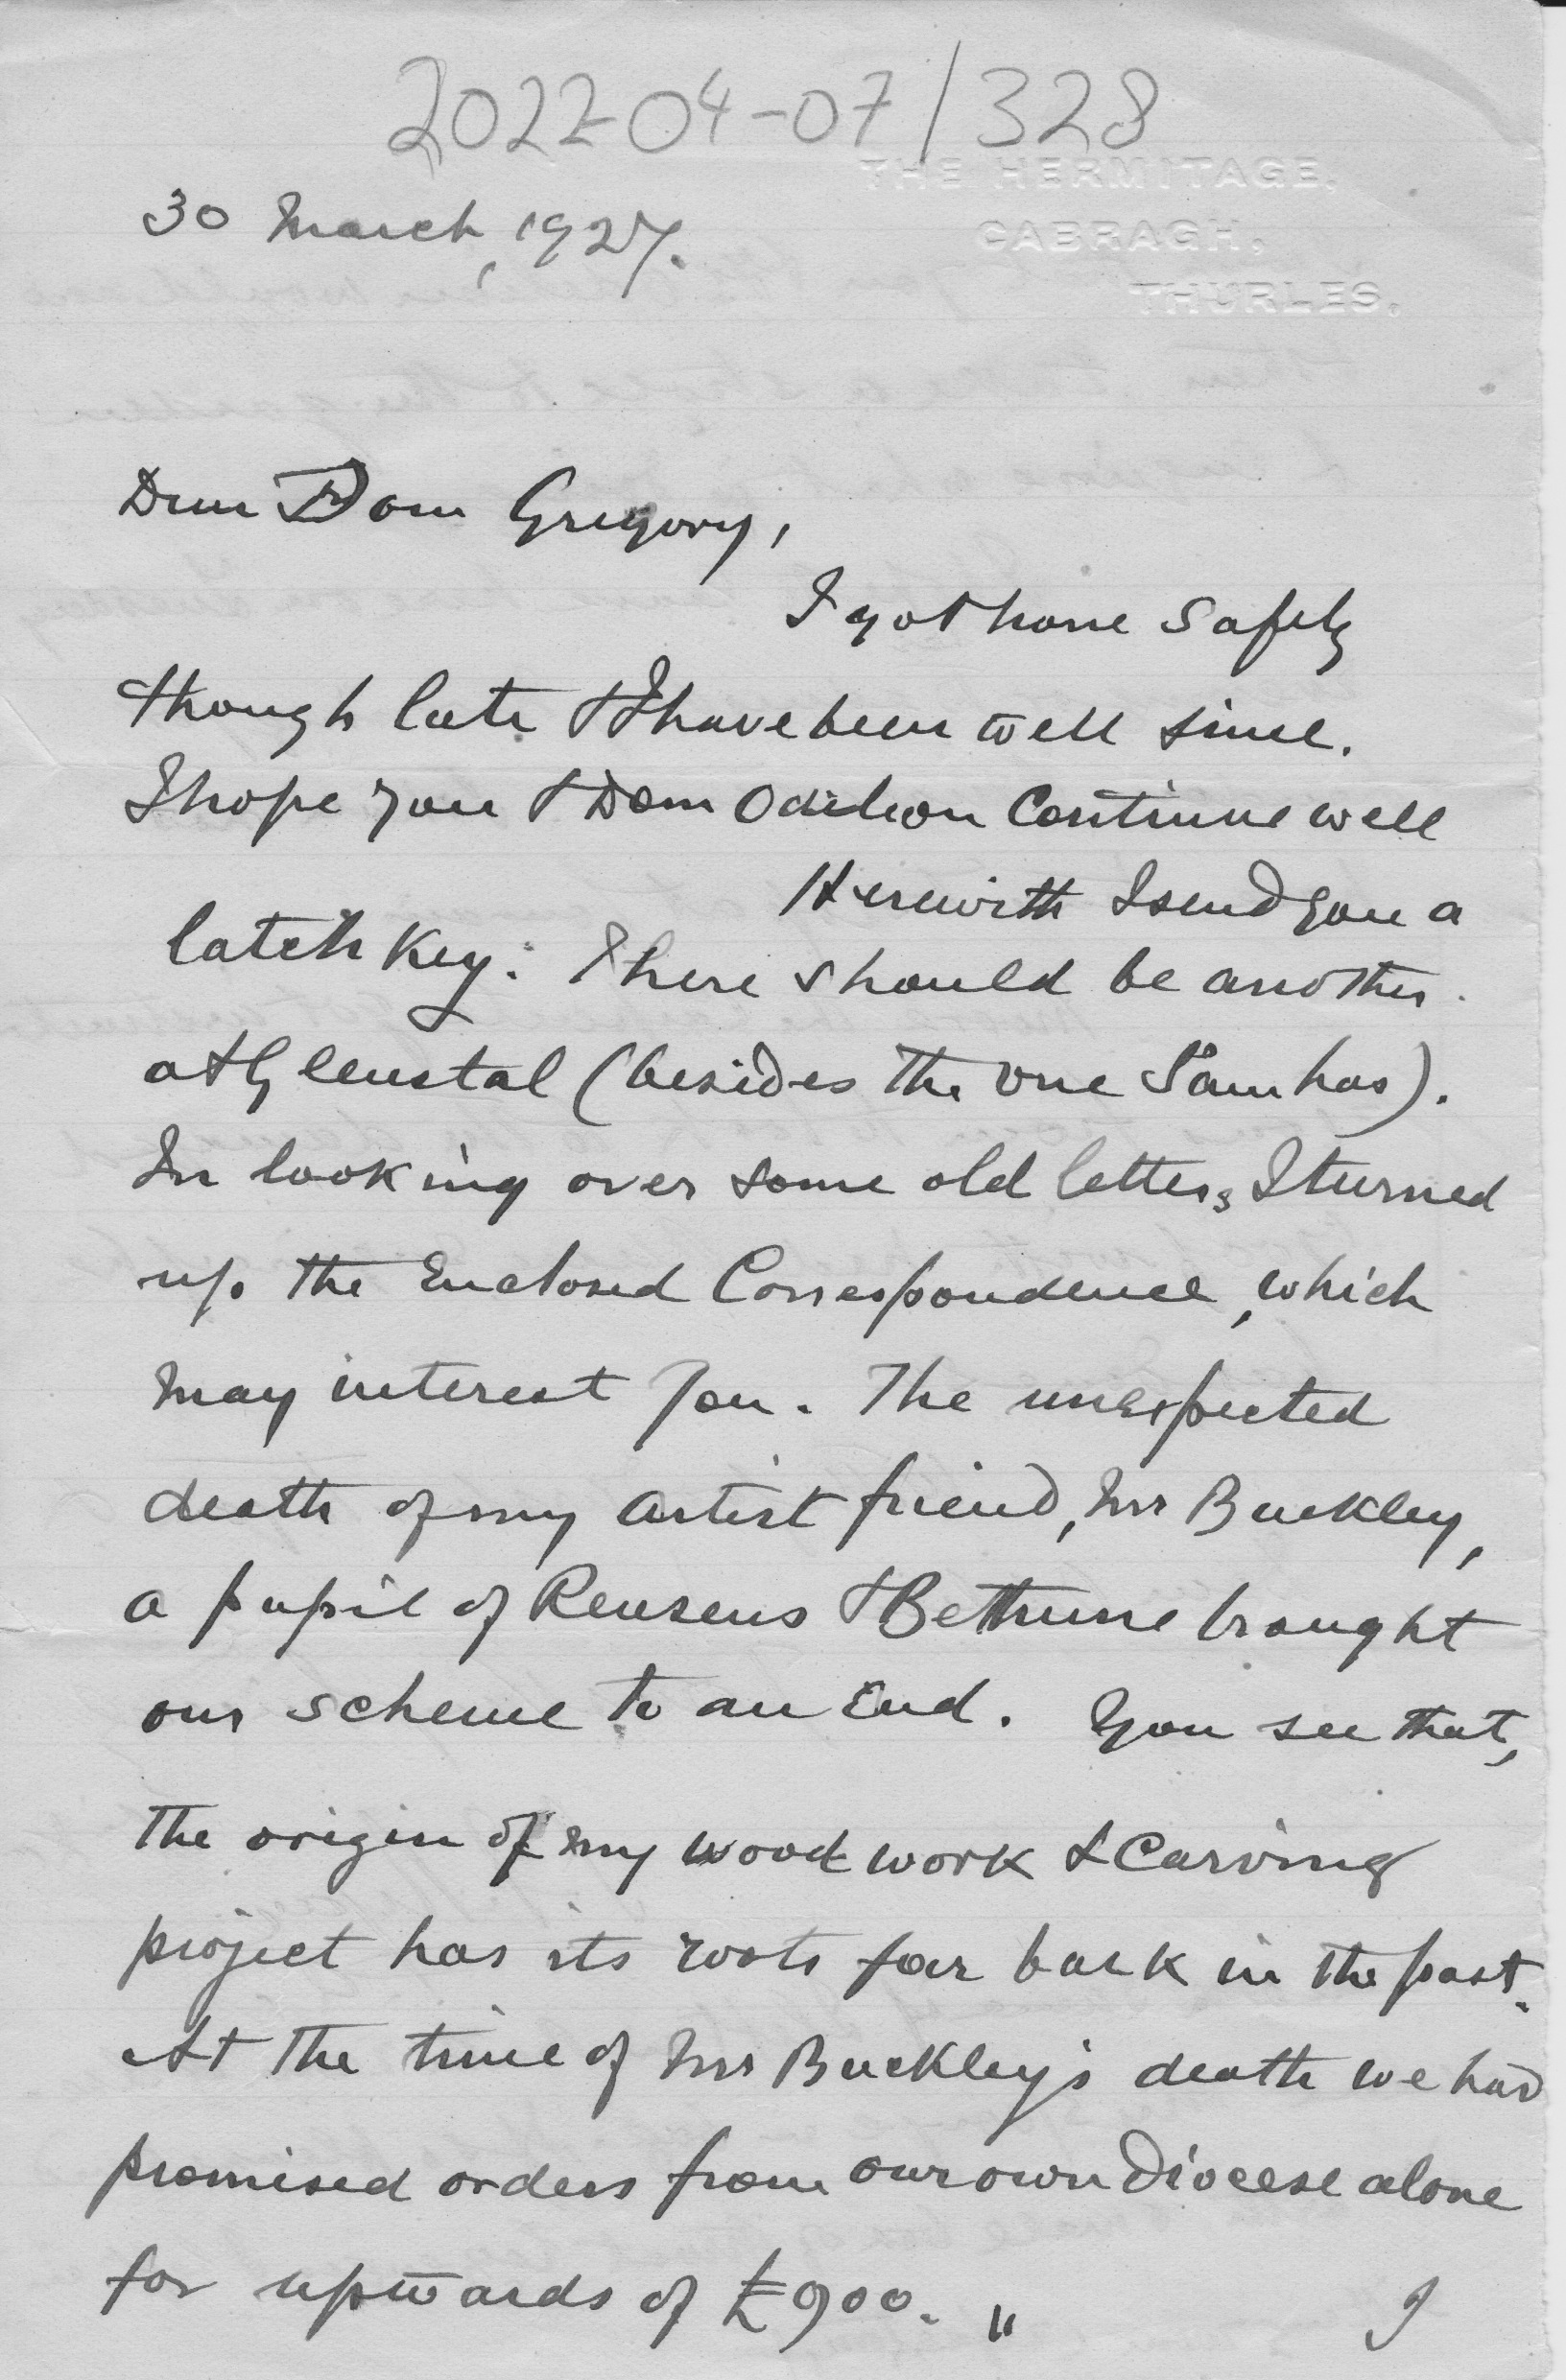 2022-04-07/328
THE HERMITAGE,
CABRAGH,
THURLES.
30 March, 1927.
Dear Dom Gregory,
I got home safely
though late & I have been well since.
I hope you & Dom Odilon continue well
Herewith I send you a
latch key: There should be another
at Glenstal (besides the one Sam has).
In looking over some old letters, I turned
up the enclosed Correspondence, which
may interest you. The unexpected
death of my artist friend, Mr Buckley,
a pupil of Reusens & Bethune brought
our scheme to an end. You see that,
the origin of my wood work & Carving
project has its roots far back in the past.
At the time of Mr Buckley's death we had
promised orders from our own Diocese alone
for upwards of £900. "
I